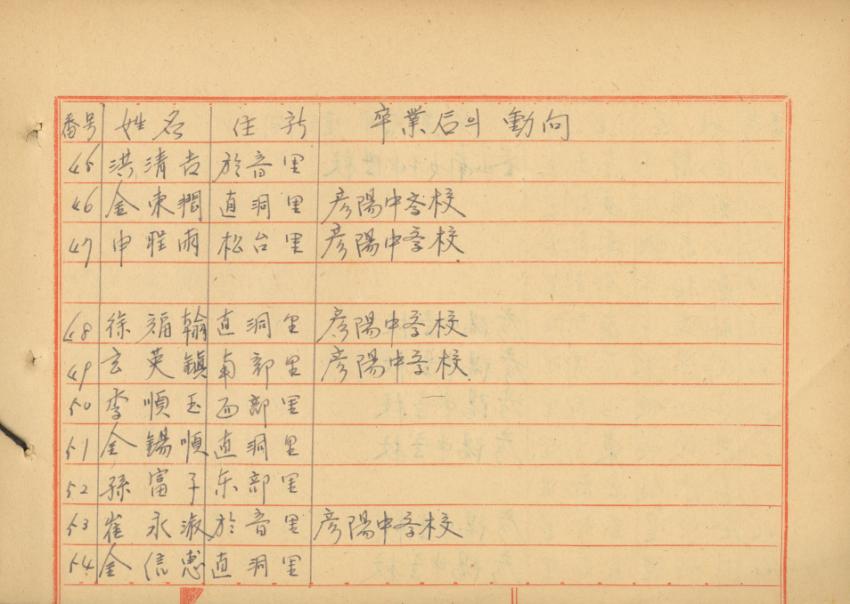 番号 姓名 住所 卒業后의 動向
45 洪清吉 於音里
46 金東潤 直洞里 彦陽中学校
47 申雨 松台里 彦陽中学校
48 徐福翰 直洞里 彦陽中学校
49 玄英鎮 南部里 彦陽中学校
50 李順玉 西部里
51 金錫順 直洞里
52 孫富子 东部里
53 崔永淑 於音里 彦陽中学校
54 金信惠 直洞里